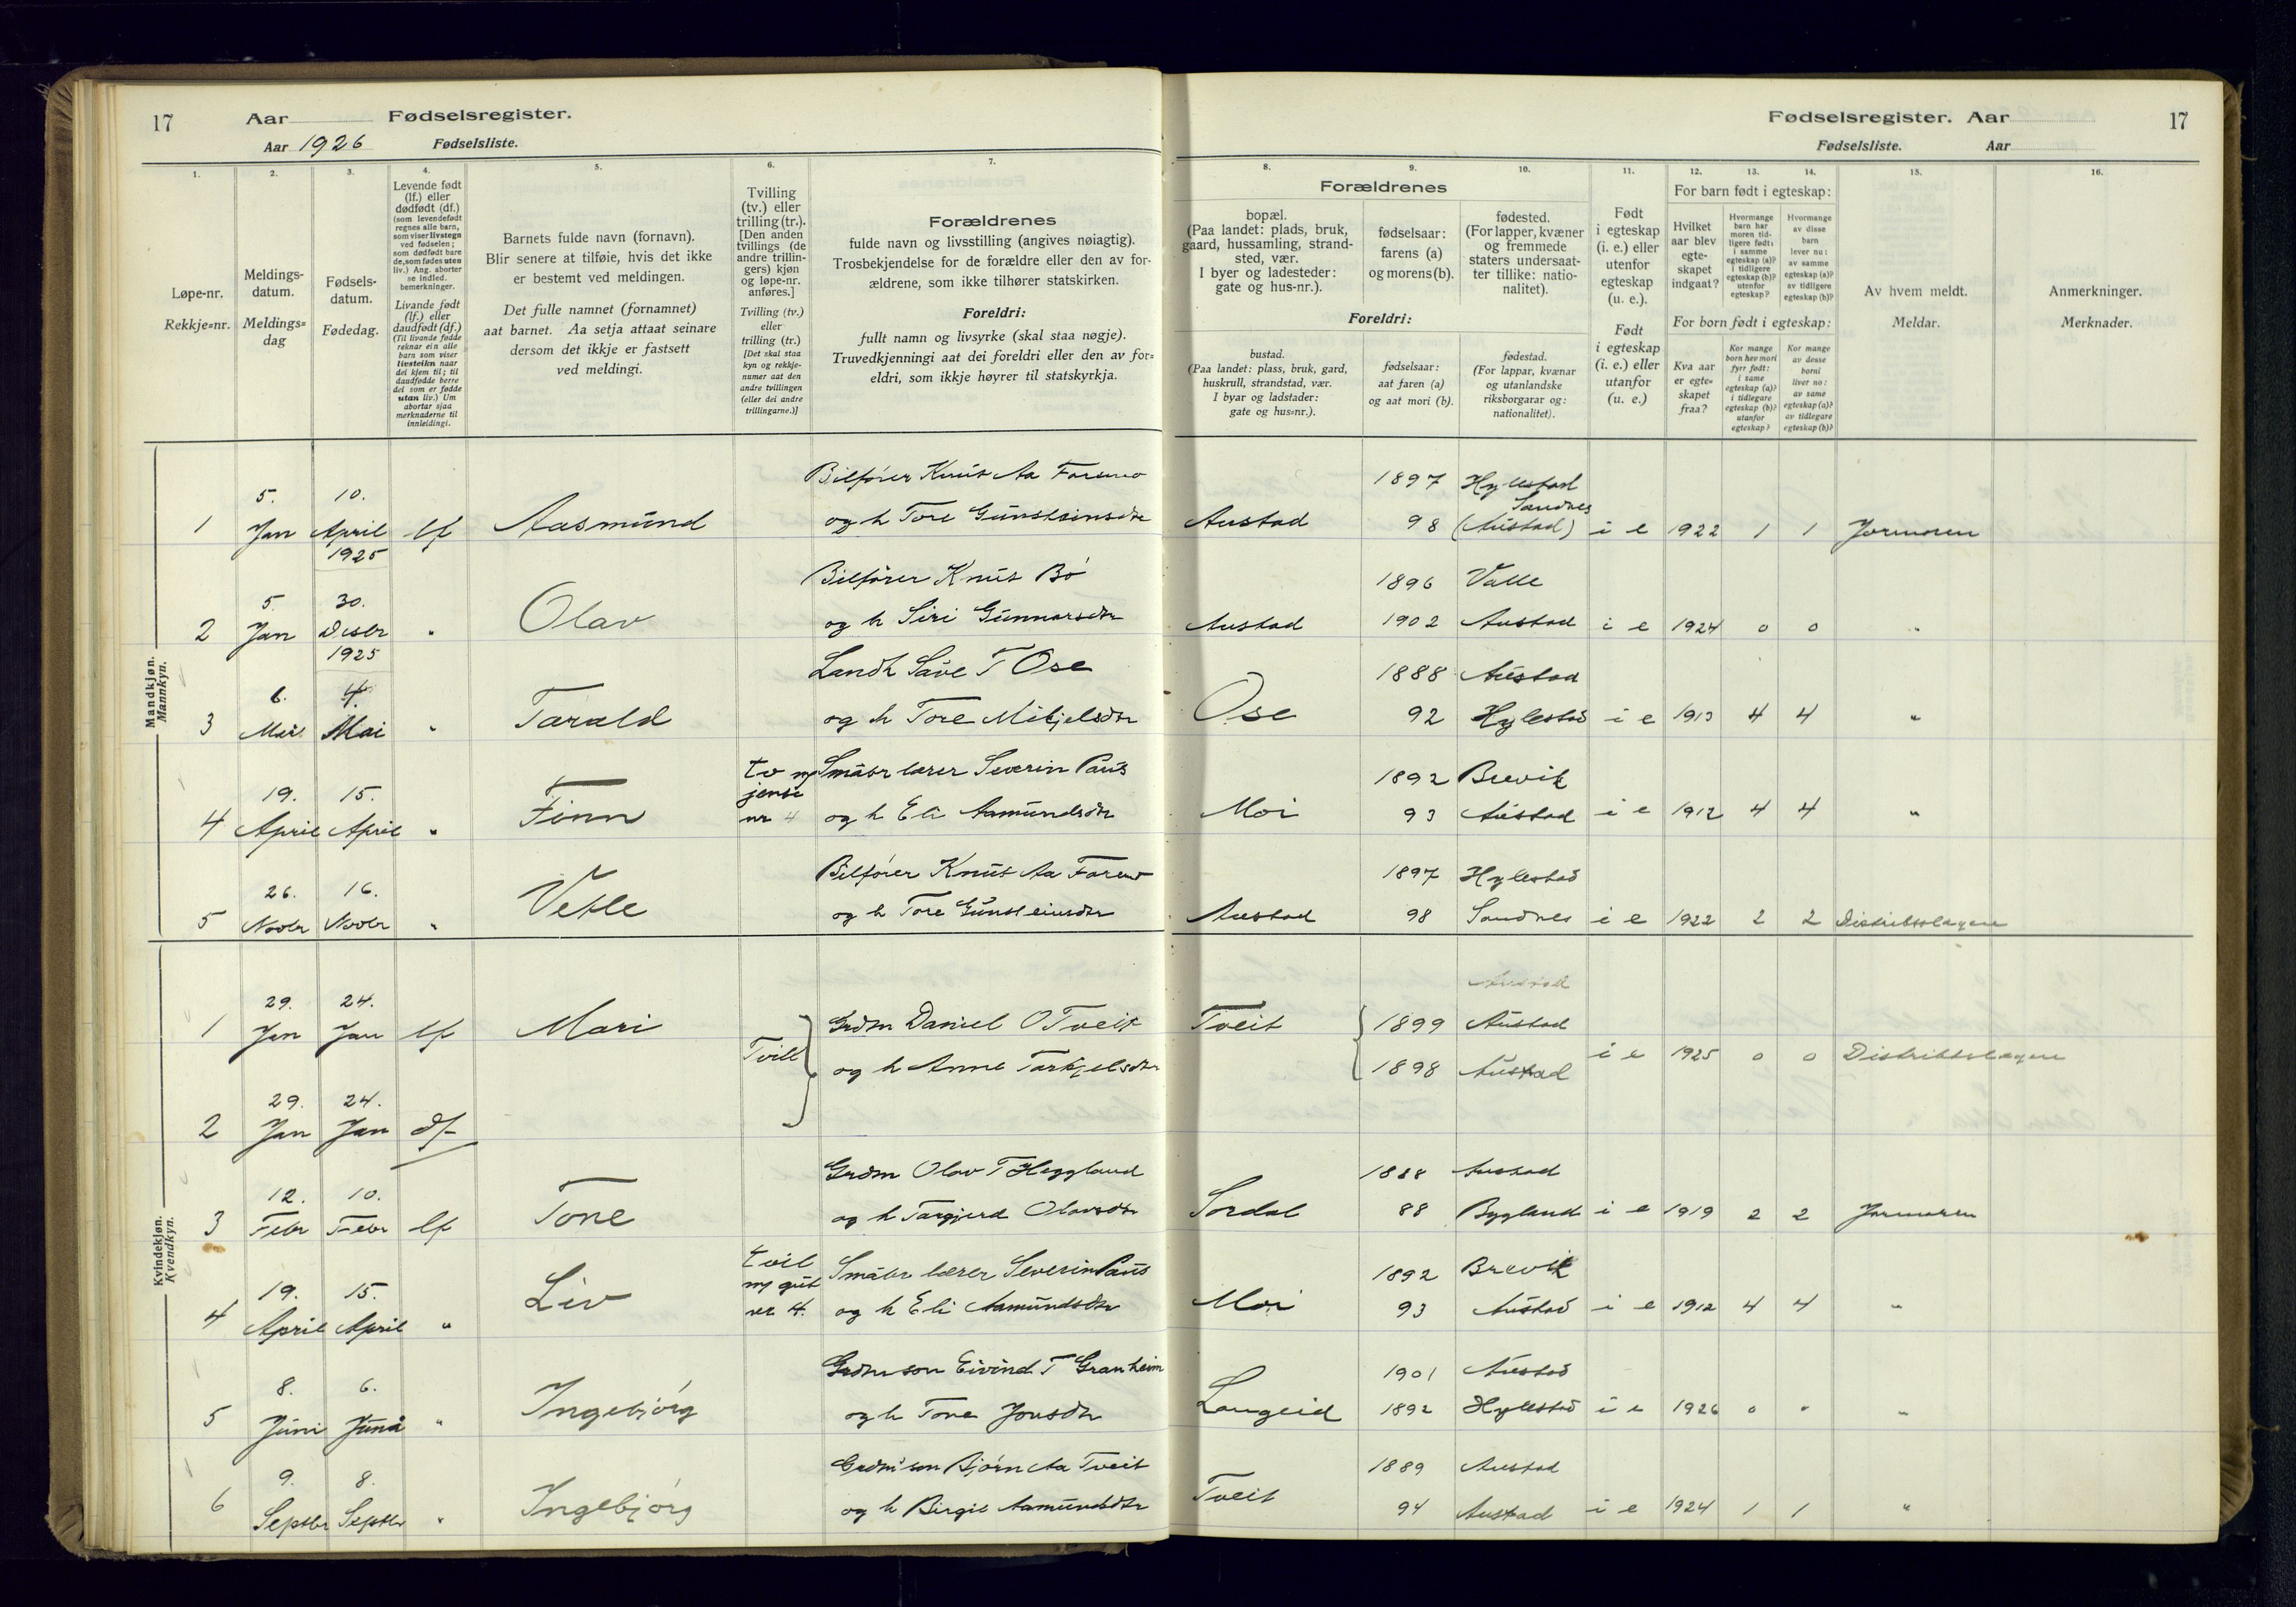 17 Aar Fødselsregister.
Aar 1926 Fødselsliste.
1. 2. 3. 4. 5. 6. 7.
Løpe-nr.
Rekkje=nr.
Meldings-
datum.
Meldings=
dag
Fødsels-
datum.
Fødedag.
Levende født
(lf.) eller
dødfødt (df.)
(som levendefødt
regnes alle barn,
som viser livstegn
ved fødselen;
som dødfødt bare
de, som fødes uten
liv.) Ang. aborter
se indled.
bemerkninger.
Livande født
(lf.) eller
daudfødt (df.)
(Til livande fødde
reknar ein alle
barn som viser
livsteikn naar
dei kjem til; til
daudfødde berre
dei som er fødde
utan liv.) Um
abortar sjaa
merknaderne til
innleidingi.
Barnets fulde navn (fornavn).
Blir senere at tilføie, hvis det ikke
er bestemt ved meldingen.
Det fulle namnet (fornamnet)
aat barnet. Aa setja attaat seinare
dersom det ikkje er fastsett
ved meldingi.
Tvilling
(tv.) eller
trilling (tr.).
[Den anden
tvillings (de
andre trillin-
gers) kjøn
og løpe-nr.
anføres.]
Tvilling (tv.)
eller
trilling (tr.)
[Det skal staa
kyn og rekkje-
numer aat den
andre tvillingen
(eller dei andre
trillingarne.)]
Forældrenes
fulde navn og livsstilling (angives nøiagtig).
Trosbekjendelse for de forældre eller den av for-
ældrene, som ikke tilhører statskirken.
Foreldri:
fullt namn og livsyrke (skal staa nøgje).
Truvedkjenningi aat dei foreldri eller den av for=
eldri, som ikkje høyrer til statskyrkja.
Mandkjøn.
Mannkyn.
Bilfører Knut Aa Farsmo
5. 10.
1 Jan April lf Aasmund og h Tore Gunsteinsdtr
1925
Bilfører Knut Bø
5. 30.
2 Jan Desbr " Olav og h Siri Gunnarsdtr
1925
Landh Save T Ose
6. 4.
3 Mai Mai " Tarald og h Tore Mikjelsdtr
tv m Småbr lærer Severin Paus
jente
19. 15.
4 April April " Finn nr 4 og h Eli Aamundsdtr
Bilfører Knut Aa
26. 16.
5 Novbr Novbr " Vetle og h Tore Gunsteinsdtr
Kvindekjøn.
Kvendkyn.
29. 24.
1 Jan Jan lf Mari Tvill Grdm Daniel O Tveit
og h Anne Tarkjelsdtr
29. 24.
2 Jan Jan df
Grdm Olav T Heggland
12. 10.
3 Febr Febr lf Tone og h Targjerd Olavsdtr
tvil Småbr lærer Severin Paus
19. 15. m gut
4 April April " Liv nr 4. og h Eli Aamundsdtr
Grdmson Eivind T Granheim
8. 6.
5 Juni Juni " Ingebjørg og h Tone Jonsdtr
Grdmson Bjørn Aa Tveit
9. 8.
6 Septbr Septbr " Ingebjørg og h Birgit Aamundsdtr
Fødselsregister. Aar 17
Fødselsliste. Aar
8. 9. 10. 11. 12. 13. 14. 15. 16.
Forældrenes
bopæl.
(Paa landet: plads, bruk,
gaard, hussamling, strand-
sted, vær.
I byer og ladesteder:
gate og hus-nr.).
fødselsaar:
farens (a)
og morens (b).
fødested.
(For lapper, kvæner
og fremmede
staters undersaat-
ter tillike: natio-
nalitet).
Foreldri:
bustad.
(Paa landet: plass, bruk, gard,
huskrull, strandstad, vær.
I byar og ladstader:
gate og hus=nr.).
fødselsaar:
aat faren (a)
og aat mori (b).
fødestad.
(For lappar, kvænar
og utanlandske
riksborgarar og:
nationalitet).
Født
i egteskap
(i. e.) eller
utenfor
egteskap
(u. e.).
Født
i egteskap
(i. e.) eller
utanfor
(u. e.)
For barn født i egteskap:
Hvilket
aar blev
egte-
skapet
indgaat?
Hvormange
barn har
moren tid-
ligere født:
i samme
egteskap (a)?
i tidligere
egteskap (b)?
utenfor
egteskap?
Hvormange
av disse
barn
lever nu:
av samme
egteskap (a)?
av tidligere
egteskap (b)?
For born født i egteskap:
Kva aar
er egte=
skapet
fraa?
Kor mange
born hev mori
fyrr født:
i same
egteskap (a)?
i tidlegare
egteskap (b)?
utanfor
egteskap?
Kor mange
av desse
borni
liver no:
av same
egteskap (a)?
av tidlegare
egteskap (b)?
Av hvem meldt.
Meldar.
Anmerkninger.
Merknader.
1897 Hylestad
Sandnes
Austad 98 (Austad) i e 1922 1 1 Jormoren
1896 Valle
Austad 1902 Austad i e 1924 0 0 "
1888 Austad
Ose 92 Hylestad i e 1913 4 4 "
1892 Brevik
Moi 93 Austad i e 1912 4 4 "
1897 Hylestad
Austad 98 Sandnes i e 1922 2 2 Distriktslægen
Austad
Tveit 1899 Austad
i e 1925 0 0 Distriktslægen
1898 Austad
1888 Austad
Sordal 88 Bygland i e 1919 2 2 Jormoren
1892 Brevik
Moi 93 Austad i e 1912 4 4 "
1901 Austad
Langeid 1892 Hylestad i e 1926 0 " "
1889 Austad
Tveit 94 Austad i e 1924 1 1 "